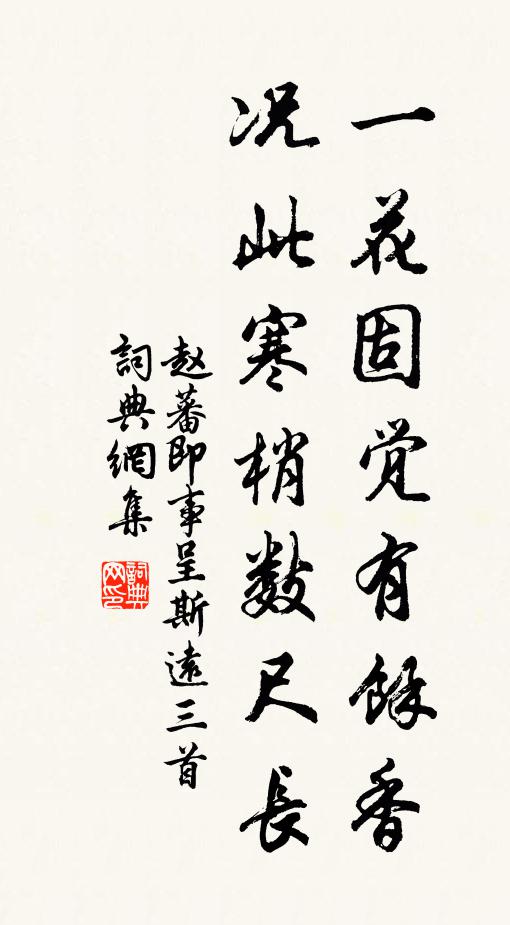 一花固觉有餘香
况此寒梢数尺長
赵蕃即事呈斯遠三首
詞典網集
詞典网印